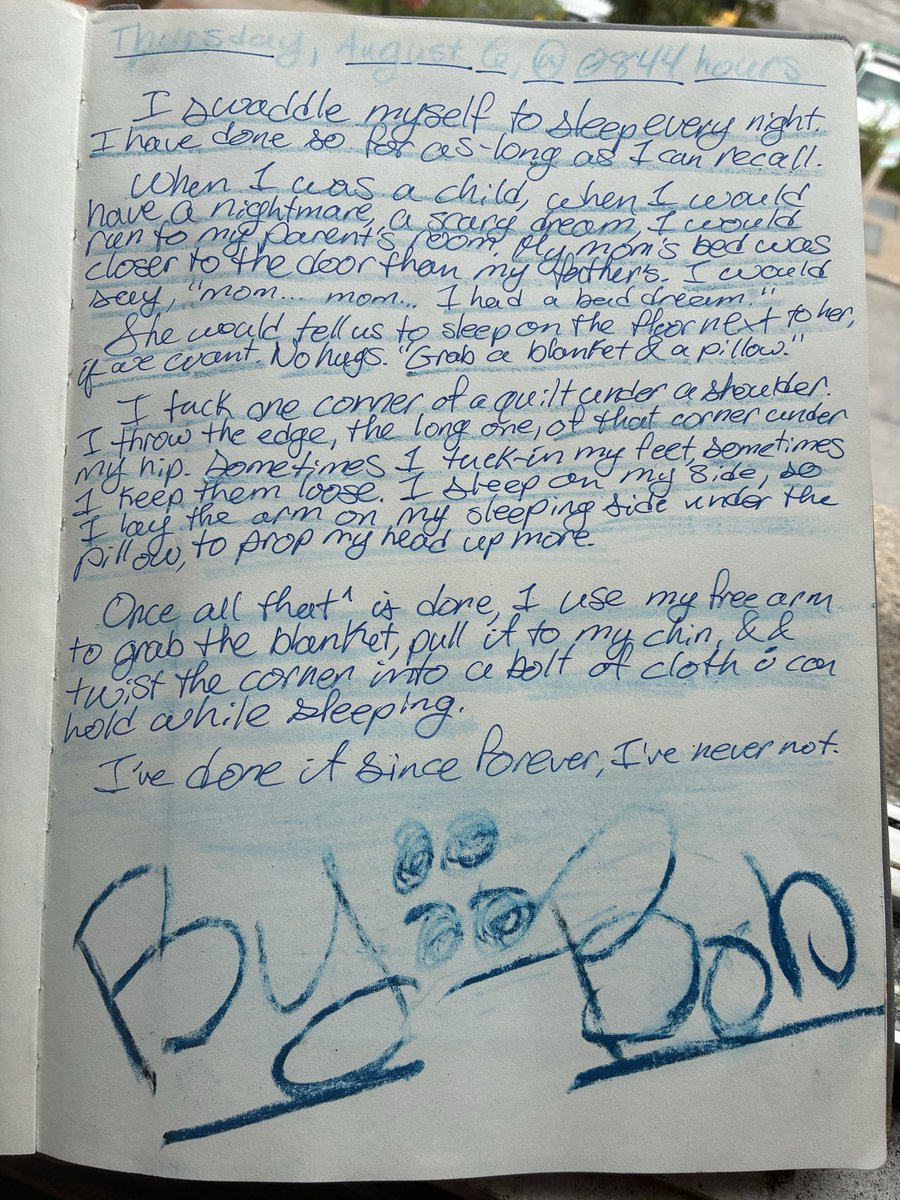 Thursday, August 6, @ 0844 hours
I swaddle myself to sleep every night.
I have done so for as-long as I can recall.
When I was a child, when I would
have a nightmare, a scary dream, I would
run to my parent's room. My mom's bed was
closer to the door than my father's. I would
say, "mom... mom... I had a bad dream."
She would tell us to sleep on the floor next to her,
if we want. No hugs. "Grab a blanket & a pillow."
I tuck one corner of a quilt under a shoulder.
I throw the edge, the long one, of that corner under
my hip. Sometimes I tuck-in my feet, sometimes
I keep them loose. I sleep on my side, so
I lay the arm on my sleeping side under the
pillow, to prop my head up more.
Once all that^ is done, I use my free arm
to grab the blanket, pull it to my chin, &&
twist the corner into a bolt of cloth i can
hold while sleeping.
I've done it since forever, I've never not.
By:: Bob